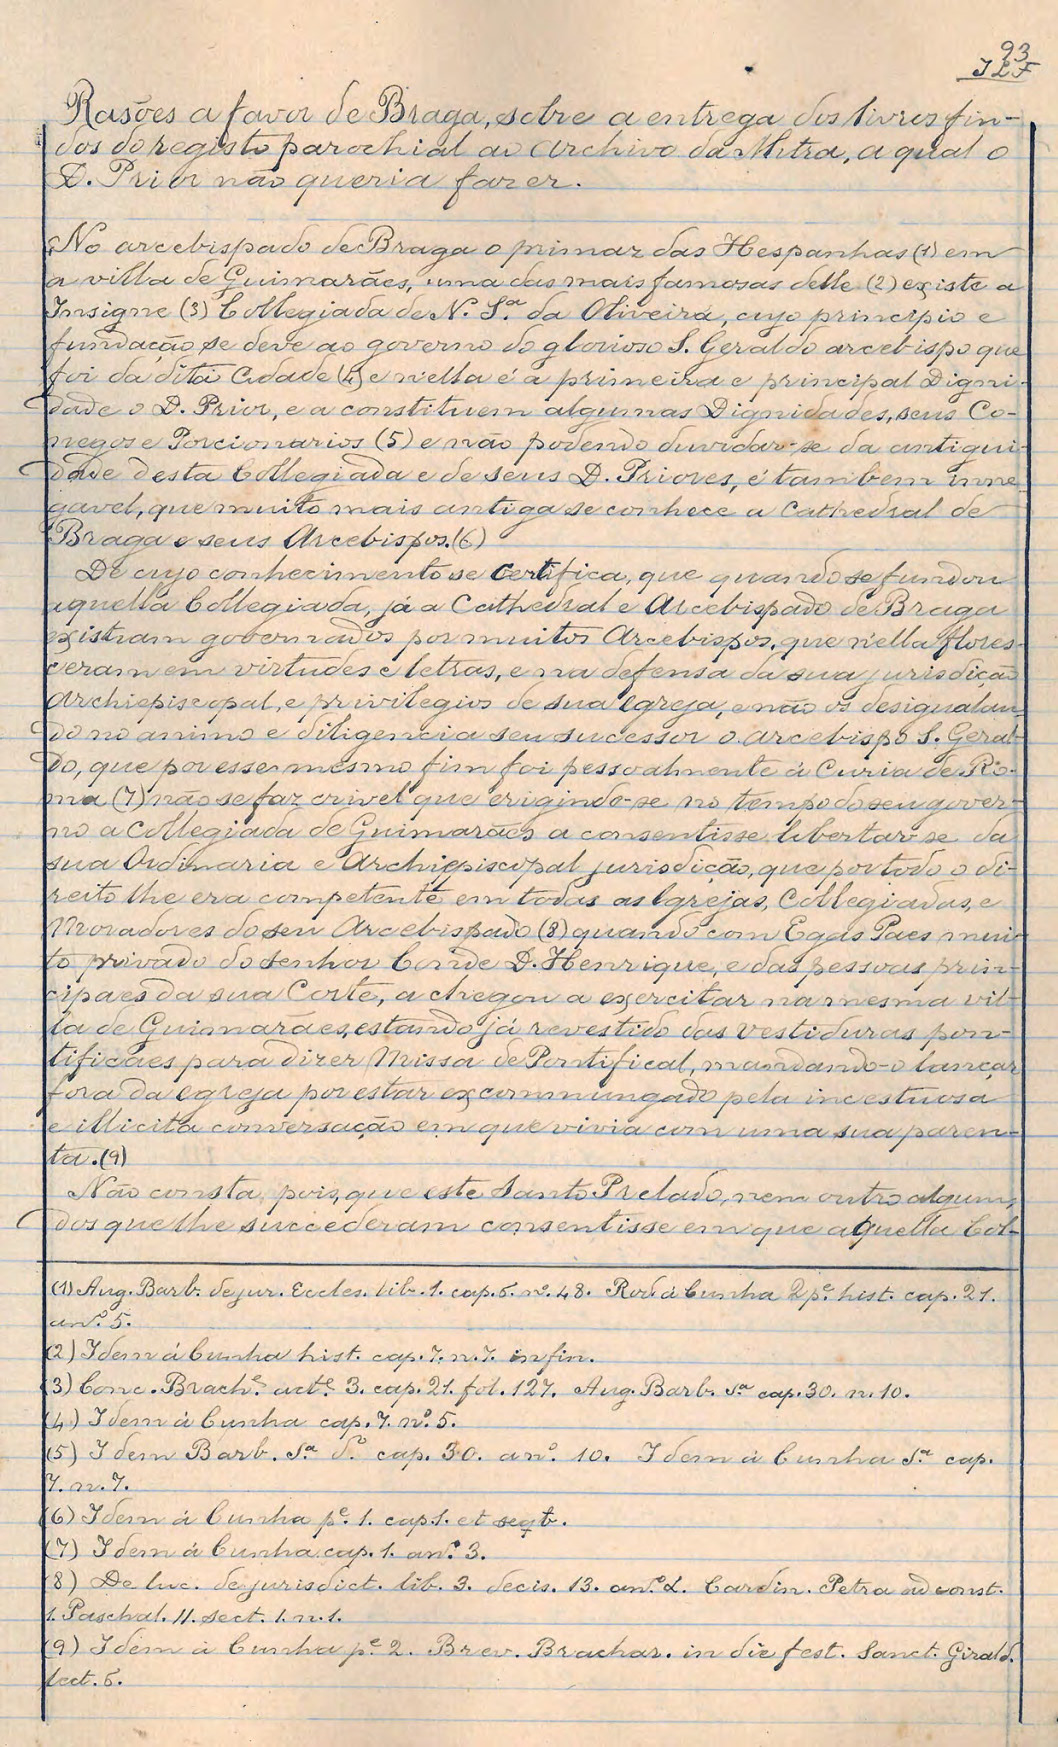 93
JLF
Rasões a favor de Braga, sobre a entrega dos livros fin-
dos do registo parochial ao Archivo da Mitra, a qual o
D. Prior não queria fazer.
No arcebispado de Braga o primaz das Hespanhas (1) em
a villa de Guimarães, uma das mais famosas delle (2) existe a
Insigne (3) Collegiada de N. Sª. da Oliveira, cujo principio e
fundação se deve ao governo do glorioso S. Geraldo arcebispo que
foi da dita Cidade (4) e n'ella é a primeira e principal Digni-
dade o D. Prior, e a constituem algumas Dignidades, seus Co-
negos e Porcionarios (5) e não podendo duvidar-se da antigui-
dade desta Collegiada e de seus D. Priores, é tambem inne-
gavel, que muito mais antiga se conhece a Cathedral de
Braga e seus Arcebispos. (6)
De cujo conhecimento se certifica, que quando se fundou
aquella Collegiada, já a Cathedral e Arcebispado de Braga
existiam governados por muitos Arcebispos, que n'ella flores-
ceram em virtudes e letras, e na defensa da sua jurisdição
Archiepiscopal, e privilegios de sua egreja, e não os desigualan-
do no animo e diligencia seu sucessor o arcebispo S. Geral-
do, que por esse mesmo fim foi pessoalmente á Curia de Ro-
ma (7) não se faz crivel que erigindo-se no tempo do seu gover-
no a Collegiada de Guimarães a consentisse libertar-se da
sua Ordinaria e Archiepiscopal jurisdição, que por todo o di-
reito lhe era competente em todas as Igrejas, Collegiadas, e
Moradores do seu Arcebispado (8) quando com Egas Paes mui-
to privado do senhor Conde D. Henrique, e das pessoas prin-
cipaes da sua Corte, a chegou a exercitar na mesma vil-
la de Guimarães, estando já revestido das vestiduras pon-
tificaes para dizer Missa de Pontifical, mandando-o lançar
fora da egreja por estar excommungado pela incestuosa
e illicita conversação em que vivia com uma sua paren-
ta. (9)
Não consta, pois, que este Santo Prelado, nem outro algum,
dos que lhe succederam consentisse em que aquella Col-
(1) Aug. Barb. de jur. Eccles. lib. 1. cap. 5. nº. 48. Rod. á Cunha 2 pe. hist. cap. 21.
anº. 5.
(2) Idem á Cunha hist. cap. 7. n. 7. in fin.
(3) Conc. Brache. acte. 3. cap. 21. fol. 127. Aug. Barb. Sª cap. 30. n. 10.
(4) Idem á Cunha cap. 7. nº. 5.
(5) Idem Barb. Sª. dº. cap. 30. anº. 10. Idem á Cunha Sª. cap.
7. n. 7.
(6) Idem á Cunha pe. 1. cap 1. et seqt.
(7) Idem á Cunha cap. 1. anº. 3.
(8) De luc. de jurisdict. lib. 3. decis. 13. anº. 2. Cardin. Petra ad const.
1. Paschal. II. sect. 1. n. 1.
(9) Idem á Cunha pe. 2. Brev. Brachar. in die fest. Sanct. Girald.
lect. 5.